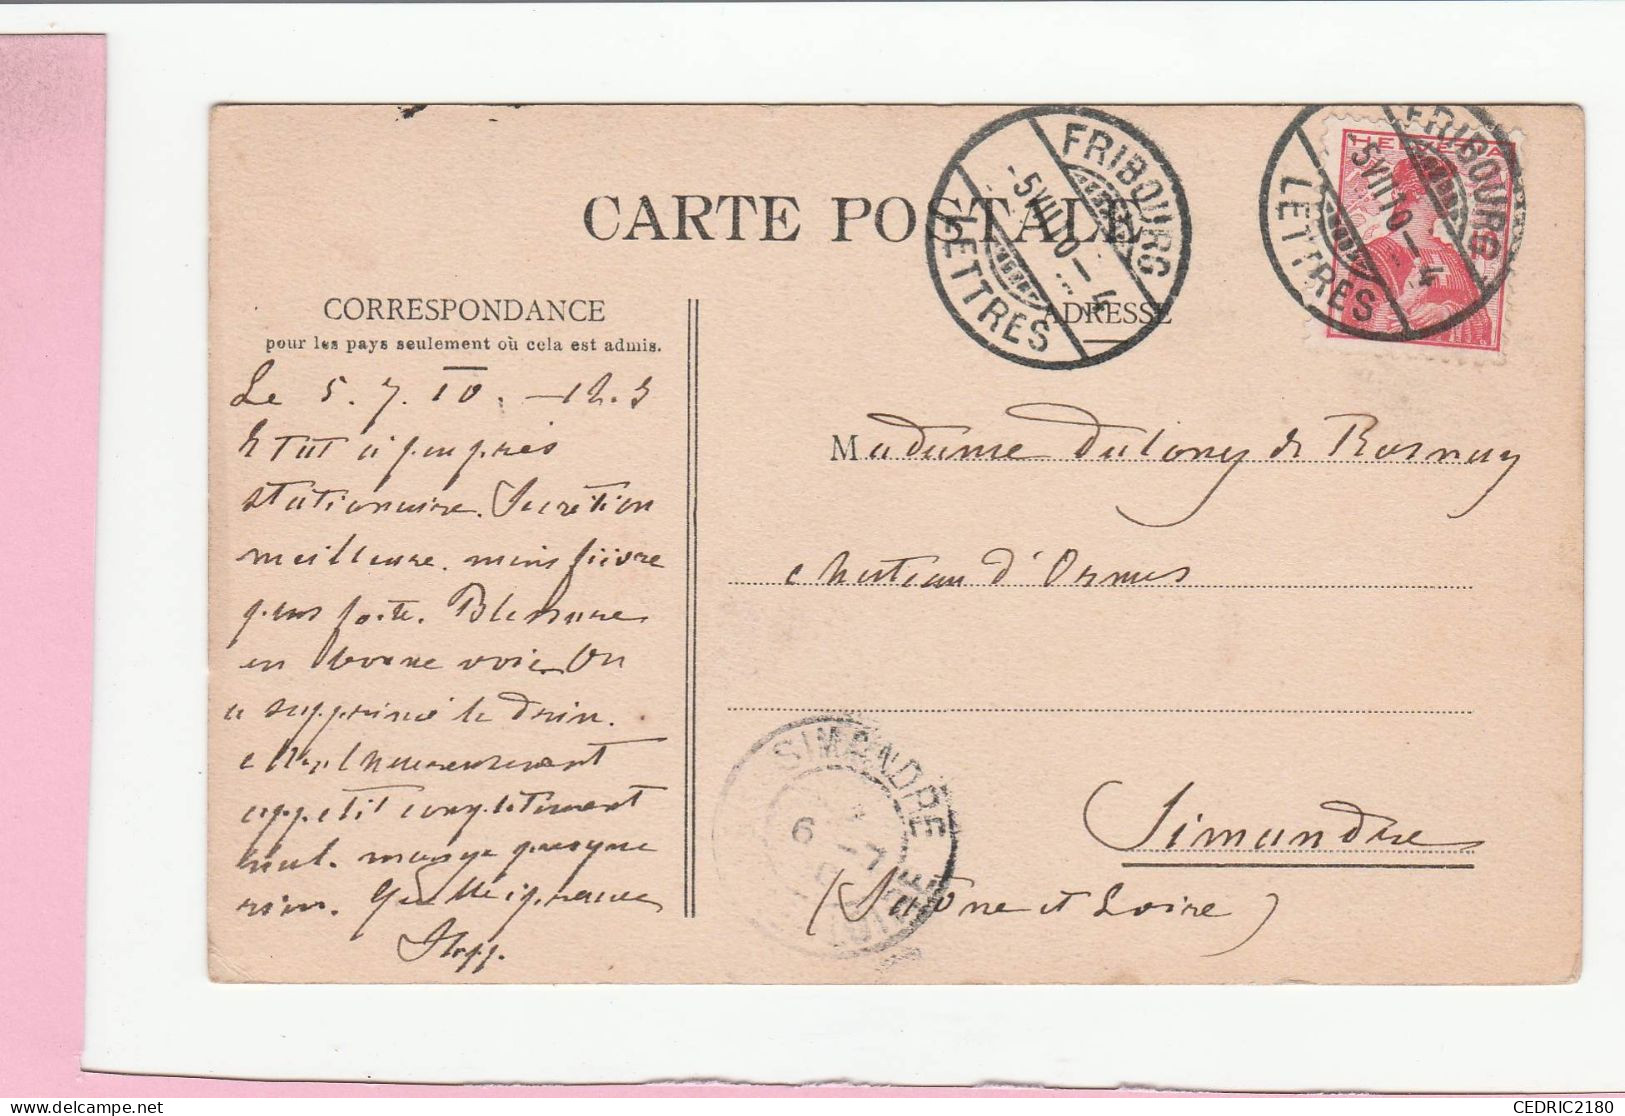 CARTE POSTALE
FRIBOURG
-5 VII 10 - 4
LETTRES
FRIBOURG
-5 VII 10 - 4
LETTRES
HELVETIA
CORRESPONDANCE
pour les pays seulement où cela est admis.
ADRESSE
Le 5. 7. 10. - 12. 3
Etat à peu près
stationnaire. Secrétion
meilleure. mais fièvre
plus forte. Blessure
en bonne voie. On
a supprimé le drin.
malheureusement
appétit complètement
nul. mange presque
rien. Quelle
Madame Dulong de Rosnay
chateau d'Ormes
Simandre
(Saône et Loire)
SIMANDRE
6 -7
10
CEDRIC2180